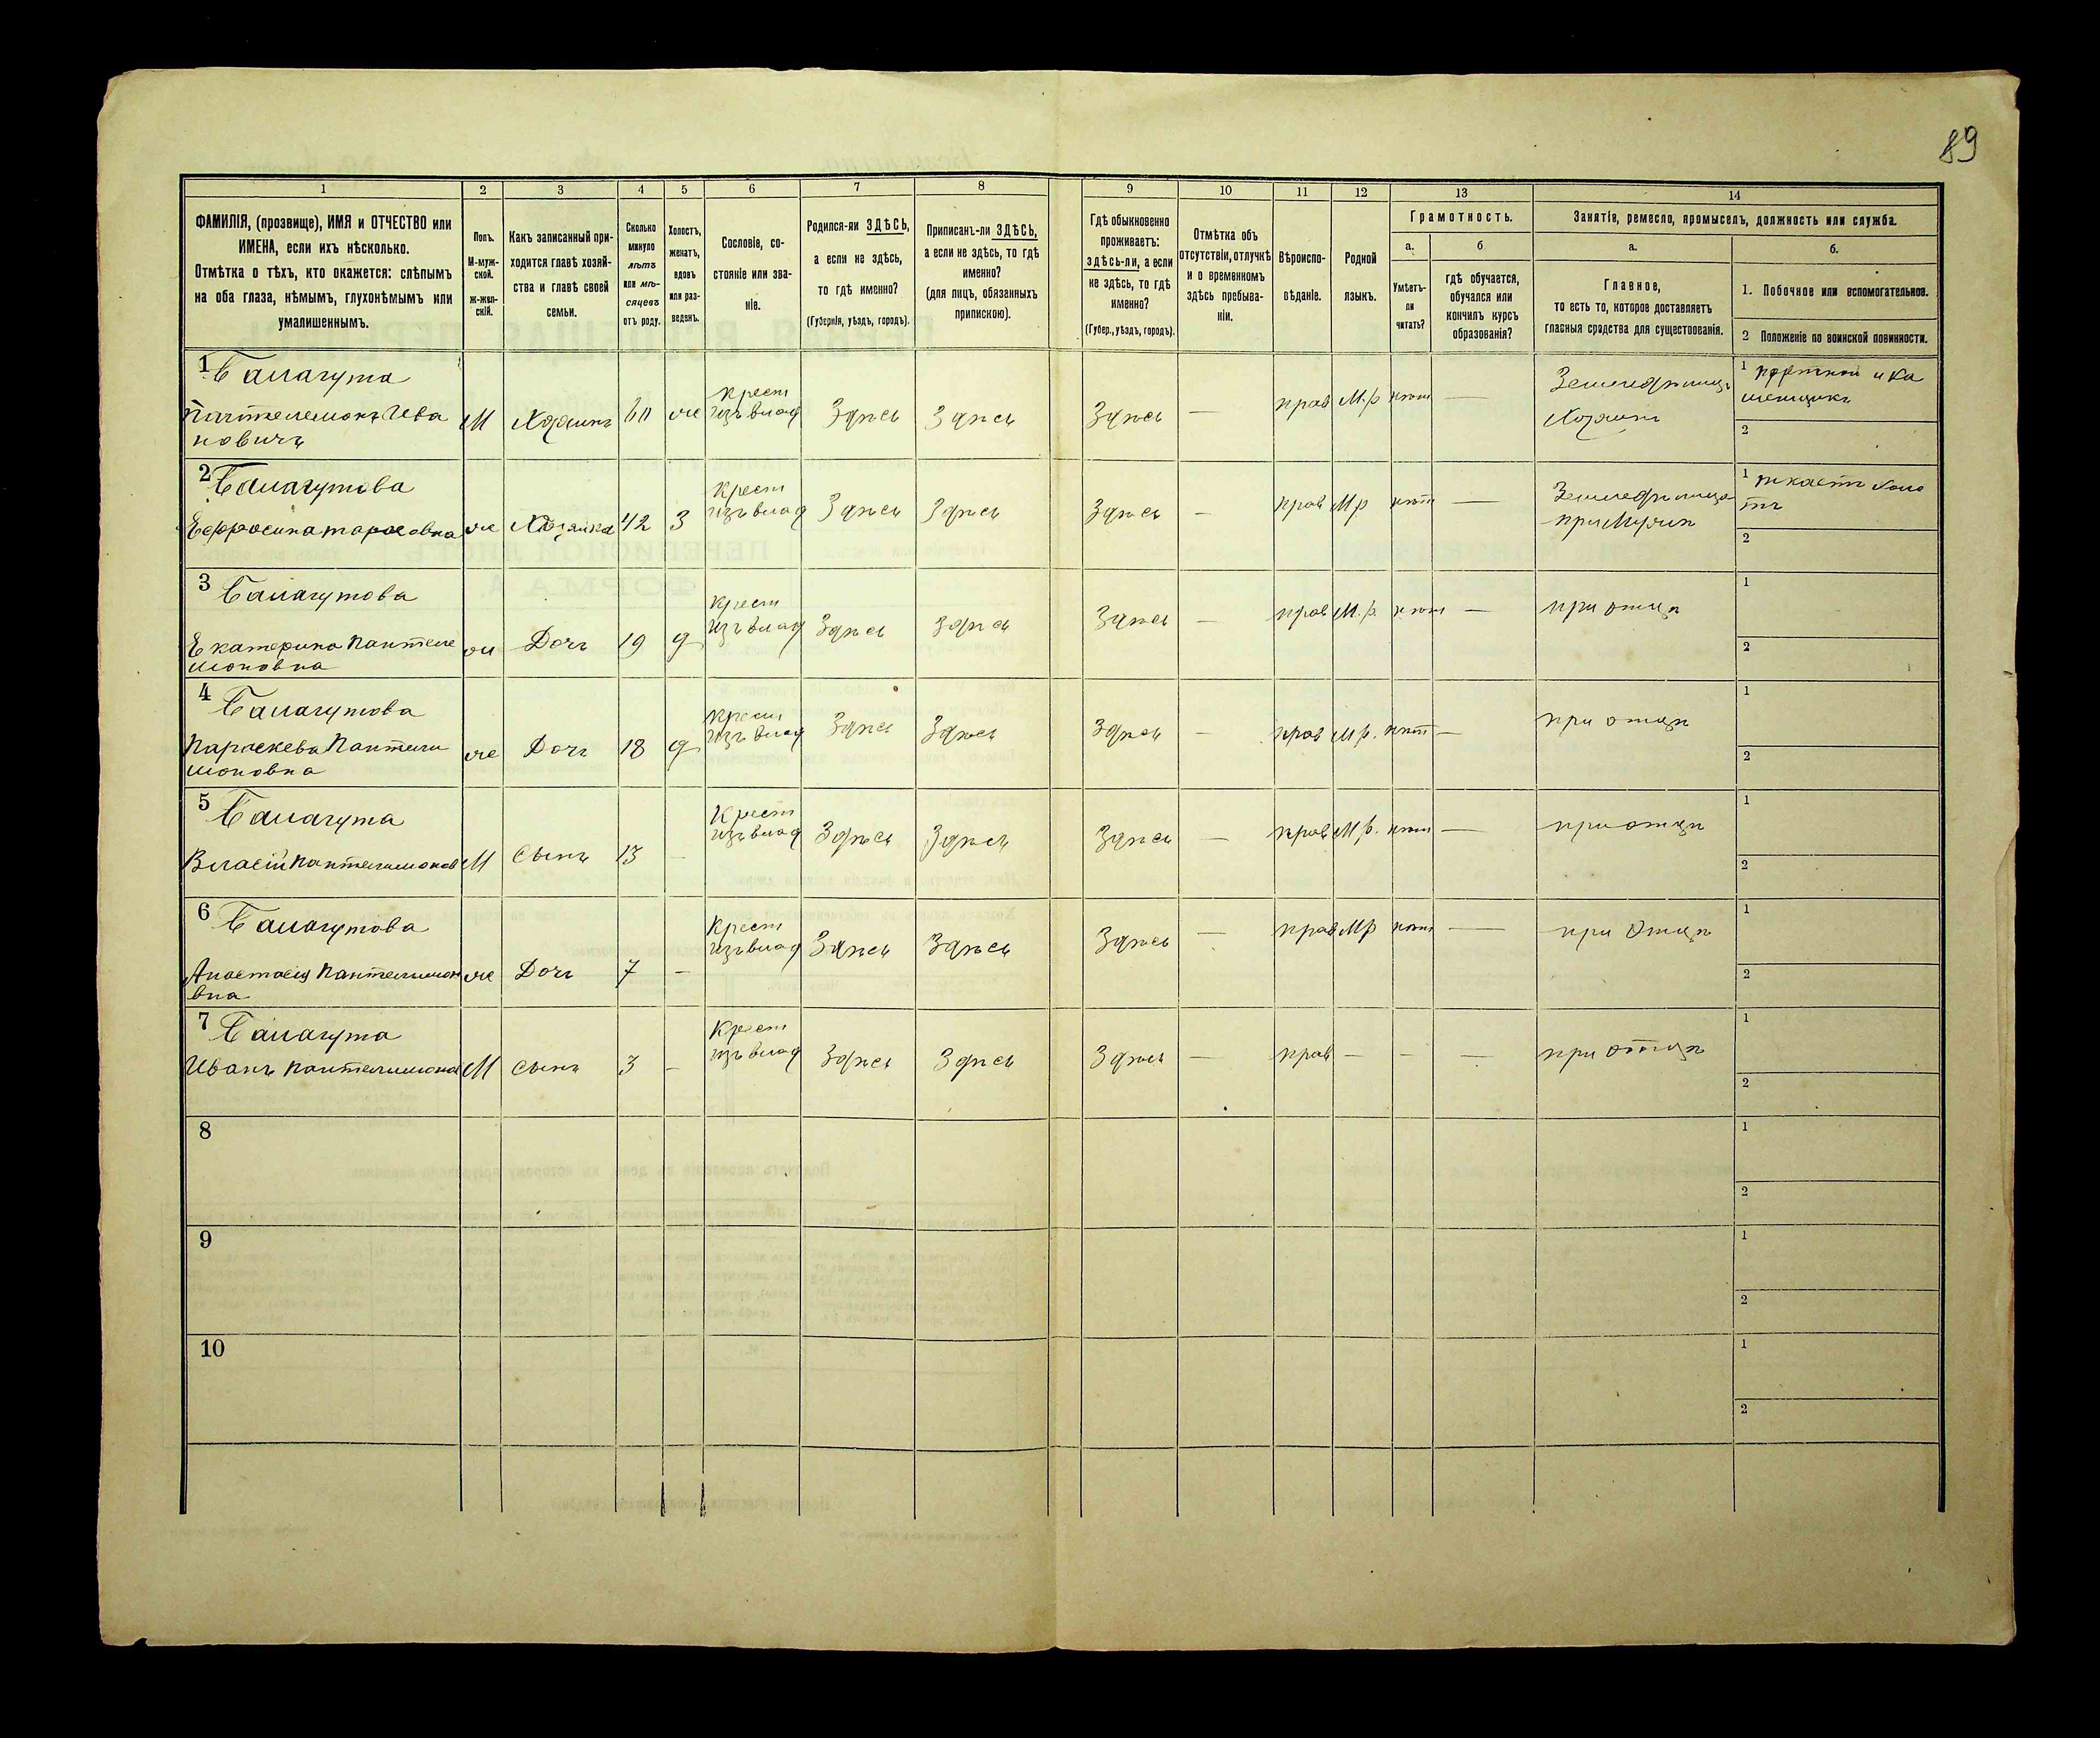 89
1 2 3 4 5 6 7 8 9 10 11 12 13 14
ФАМИЛІЯ, (прозвище), ИМЯ и ОТЧЕСТВО или
ИМЕНА, если ихъ нѣсколько.
Отмѣтка о тѣхъ, кто окажется: слѣпымъ
на оба глаза, нѣмымъ, глухонѣмымъ или
умалишеннымъ.
Полъ.
М-муж-
ской.
ж-жен-
скій.
Какъ записанный при-
ходится главѣ хозяй-
ства и главѣ своей
семьи.
Сколько
минуло
лѣтъ
или мѣ-
сяцевъ
отъ роду.
Холостъ,
женатъ,
вдовъ
или раз-
веденъ.
Сословіе, со-
стояніе или зва-
ніе.
Родился-ли ЗДѢСЬ,
а если не здѣсь,
то гдѣ именно?
(Губернія, уѣздъ, городъ).
Приписанъ-ли ЗДѢСЬ,
а если не здѣсь, то гдѣ
именно?
(для лицъ, обязанныхъ
припискою).
Гдѣ обыкновенно
проживаетъ:
здѣсь-ли, а если
не здѣсь, то гдѣ
именно?
(Губер., уѣздъ, городъ).
Отмѣтка объ
отсутствіи, отлучкѣ
и о временномъ
здѣсь пребыва-
ніи.
Вѣроиспо-
вѣданіе.
Родной
языкъ.
Грамотность.
а.
Умѣетъ-
ли
читать?
б
гдѣ обучается,
обучался или
кончилъ курсъ
образованія?
Занятіе, ремесло, промыселъ, должность или служба.
а.
Главное,
то есть то, которое доставляетъ
главныя средства для существованія.
б.
1. Побочное или вспомогательное.
2 Положеніе по воинской повинности.
1 Балагута
Пантелемонъ Ива
новичъ
М Хозяинъ ж
Крест
изъ влад
Здѣсь Здѣсь Здѣсь — прав М.р нѣт —
Земледѣлиць
Хозяинъ
1 портной и ка
менщикъ
2
2 Балагутова
Ефросина тарасовна
ж Хозяйка 42 З
Крест
изъ влад
Здѣсь Здѣсь Здѣсь — прав Мр нѣт —
Земледѣлица
при Мужѣ
1
2
3 Балагутова
Екатерина Пантеле
моновна
ж Дочь 19 д
Крест
изъ влад
Здѣсь Здѣсь Здѣсь — прав М.р. нѣт — при отцѣ
1
2
4 Балагутова
Параскева Пантели
моновна
же Дочь 18 д
Крест
изъ влад
Здѣсь Здѣсь Здѣсь — прав Мр. нѣт — при отцѣ
1
2
5 Балагута
Власій Пантелимонов
М Сынъ 13 —
Крест
изъ влад
Здѣсь Здѣсь Здѣсь — прав Мр. нѣт — при отцѣ
1
2
6 Балагутова
Анастасія Пантелимон
вна
же Дочь 7 —
Крест
изъ влад
Здѣсь Здѣсь Здѣсь — прав Мр нѣт — при Отцѣ
1
2
7 Балагута
Иванъ Пантелимонов
М Сынъ 3 —
Крест
изъ влад
Здѣсь Здѣсь Здѣсь — прав — — — при отцѣ
1
2
8
1
2
9
1
2
10
1
2